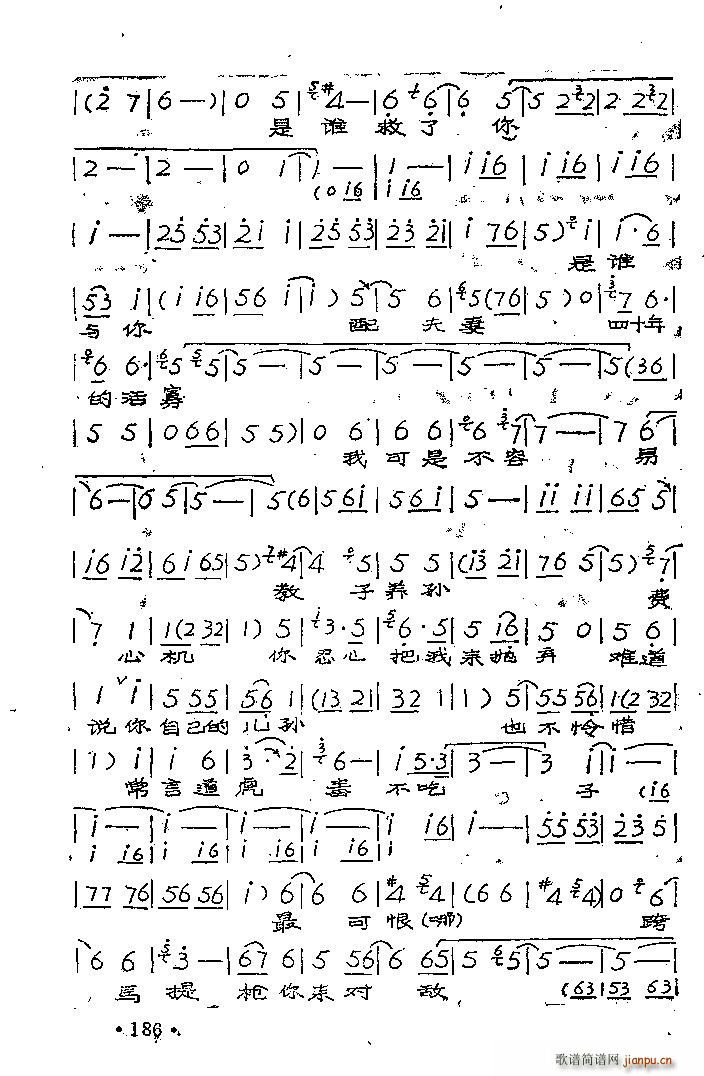 |(2 7|6—)|0 5|#4—|6 6|6 5|5 2 2|2 2 2|
是谁救了你
|2—|2—|0 1|1—|1—|1 i6|i i6|i i6|
(0 i6|i i6|
|i—|25 53|2i i|25 53|23 2i|i 76|5) i|i·6|
是谁
|53 i|(i i6|56 i|i)5|5 6|5(76|5)0|7 6·|
与你 配夫妻 四十年
|6 6·|5 5|5—|5—|5—|5—|5—|5(36|
的活寡
|5 5|0 66|5 5)|0 6|6 6|6 7|7—|7 6|
我可是不容易
|6—|6 5|5—|5(6|5 56i|56 i|5—|ii ii|65 5|
|i6 i2|6i 65|5)#4|4 5|5 5|(i3 2i|76 5|5)7|
教子养孙 费
|7 1|1(2 32|1)5|3·5|6·5|5 i6|5 0|5 6|
心机 你忍心把我来抛弃 难道
|1 i|5 55|56 1|(13 21|32 1|1)5|55 56|1(2 32|
说你自己的儿孙 也不怜惜
|1)i|i 6|3·2|6—|i 5·3|3—|3 i|i—|
常言道虎毒不吃子
(i6
|i—|i—|i—|i—|i i6|i—|55 53|23 5|
i i6|i i6|i i6|i i6|i
|77 76|56 56|i)6|6 6|#4 4|(6 6|#4 4)|0 6|
最可恨(哪) 跨
|6 6|3—|67 6|5 56|6 65|5 5|5—|5—|
马提枪你来对敌
(63|53 63|
·186·
歌谱简谱网 jianpu.cn